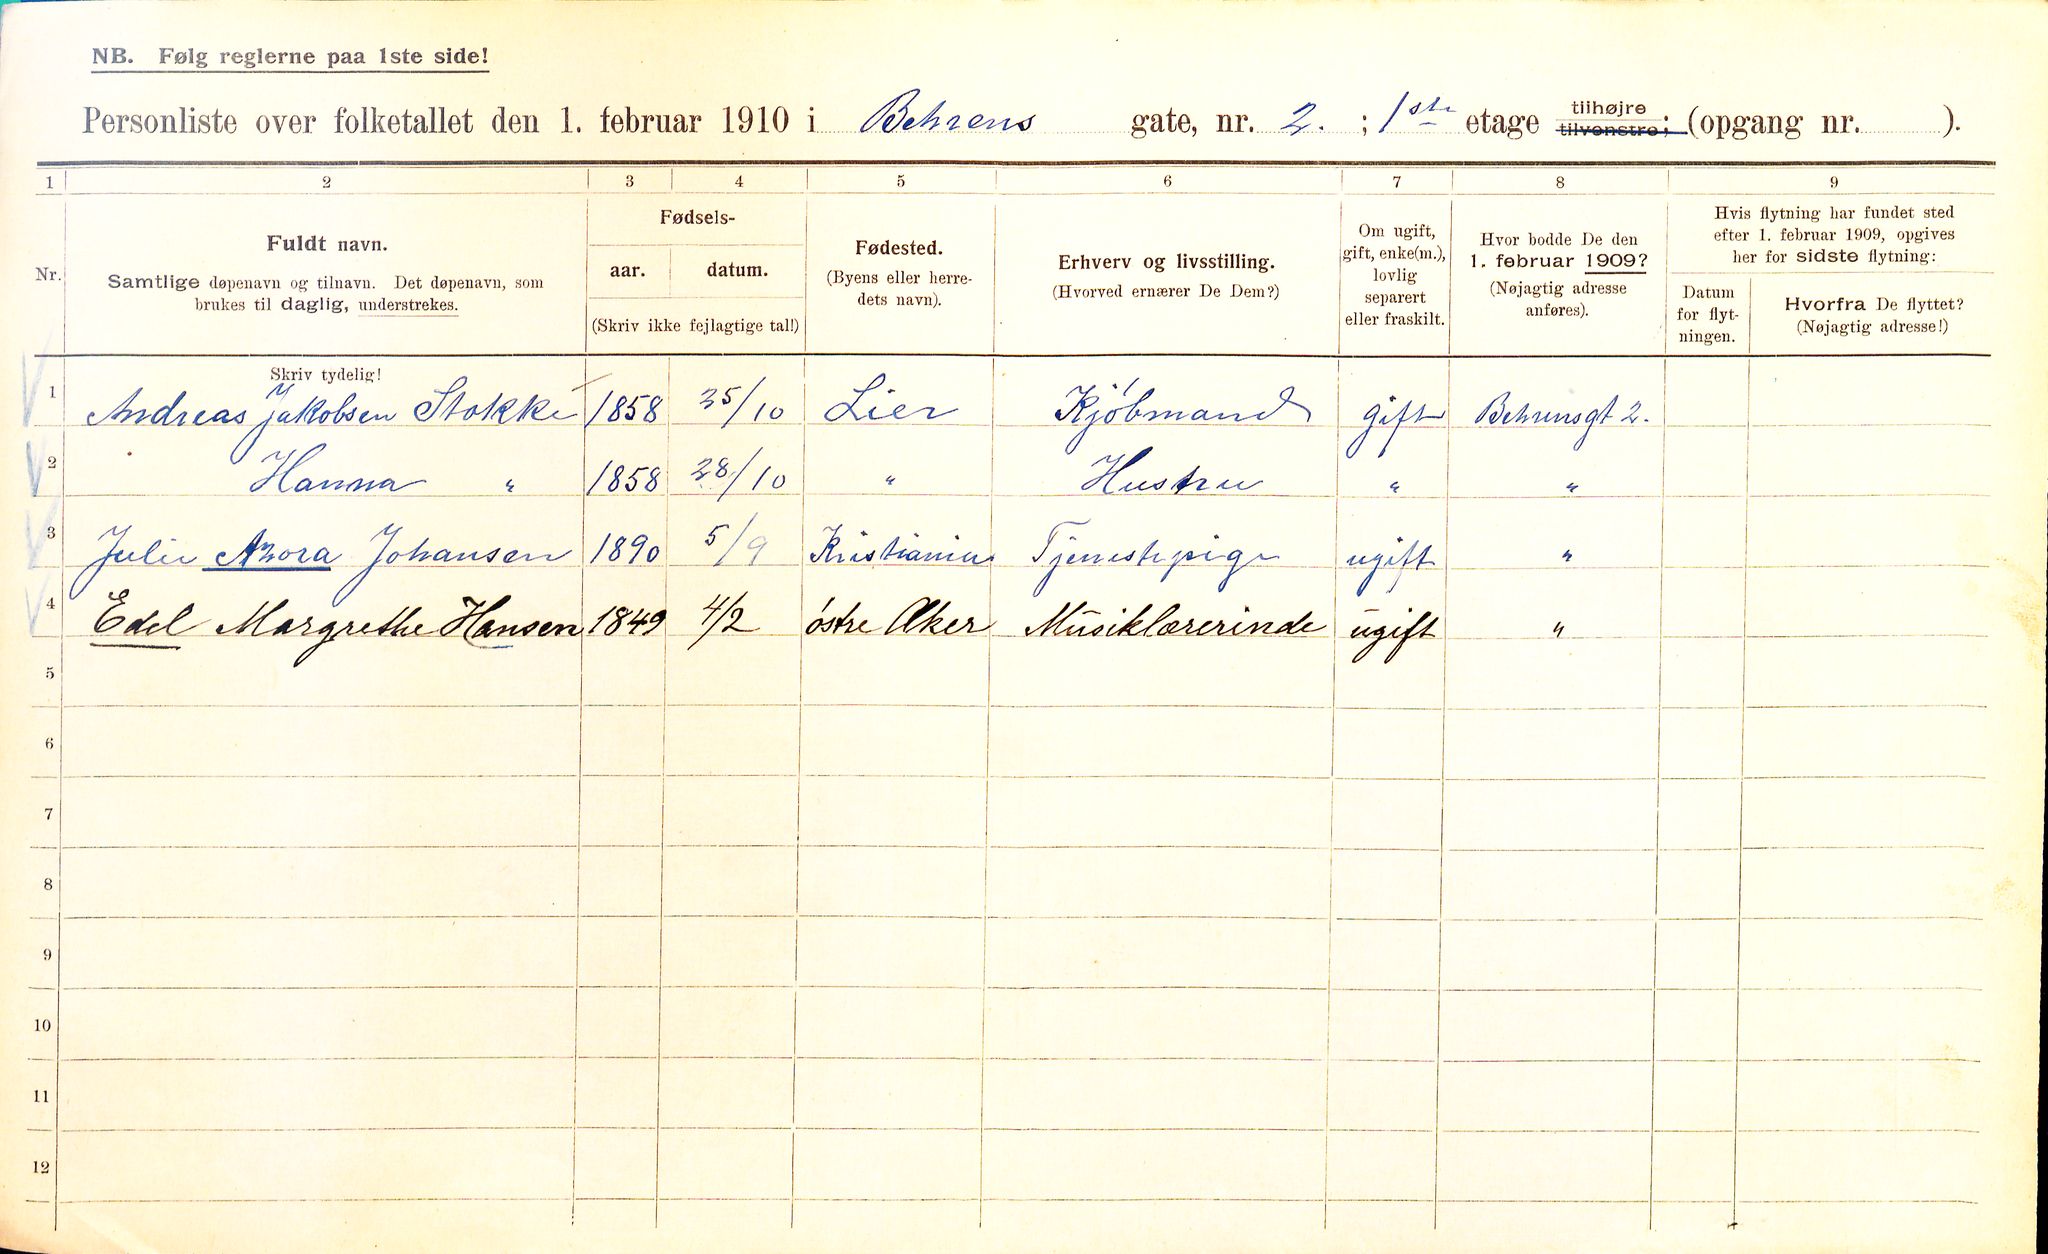 NB. Følg reglerne paa 1ste side!
Personliste over folketallet den 1. februar 1910 i Behrens gate, nr. 2. ; 1ste etage tilhøjre tilvenstre; (opgang nr. ).
1 2 3 4 5 6 7 8 9
Nr.
Fuldt navn.
Samtlige døpenavn og tilnavn. Det døpenavn, som
brukes til daglig, understrekes.
Skriv tydelig!
Fødsels-
aar. datum.
(Skriv ikke fejlagtige tal!)
Fødested.
(Byens eller herre-
dets navn).
Erhverv og livsstilling.
(Hvorved ernærer De Dem?)
Om ugift,
gift, enke(m.),
lovlig
separert
eller fraskilt.
Hvor bodde De den
1. februar 1909?
(Nøjagtig adresse
anføres).
Hvis flytning har fundet sted
efter 1. februar 1909, opgives
her for sidste flytning:
Datum
for flyt-
ningen.
Hvorfra De flyttet?
(Nøjagtig adresse!)
1 Andreas Jakobsen Stokke 1858 25/10 Lier Kjöbmand gift Behrensgt 2.
2 Hanna " 1858 28/10 " Hustru " "
3 Julie Azora Johansen 1890 5/9 Kristiania Tjenestepige ugift "
4 Edel Margrethe Hansen 1849 4/2 östre Aker Musiklærerinde ugift "
5
6
7
8
9
10
11
12